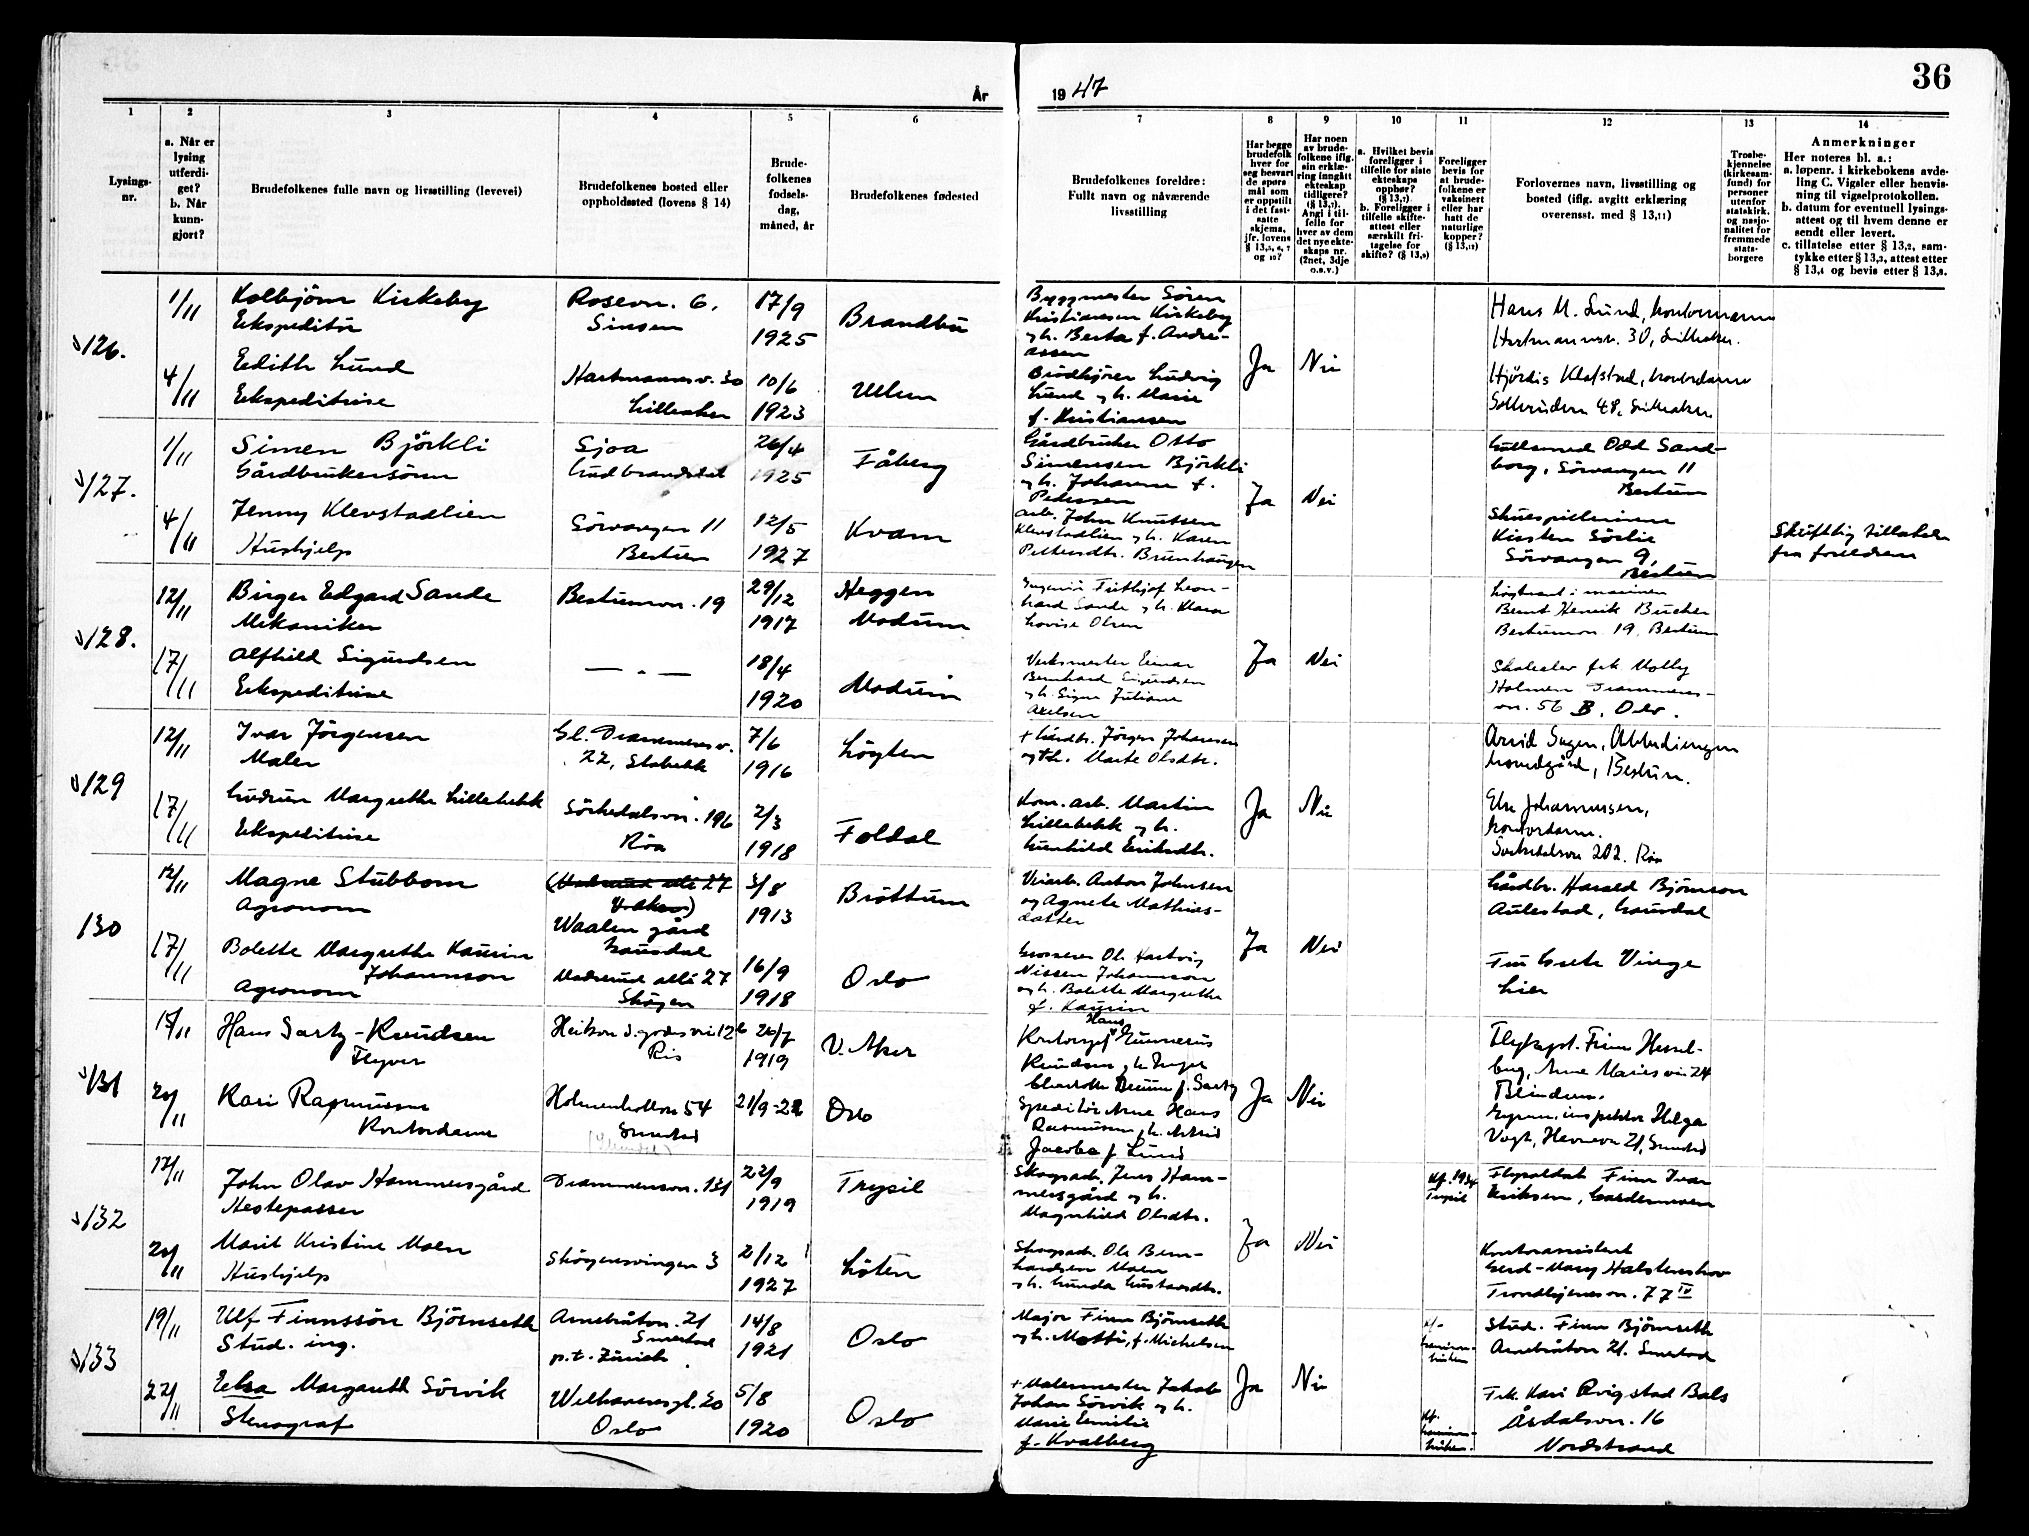 År
19 47
36
1
2
3
4
5
6
7
8
9
10
11
12
13
14
Lysings-
nr.
a. Når er
lysing
utferdi-
get?
b. Når
kunn-
gjort?
Brudefolkenes fulle navn og livsstilling (levevei)
Brudefolkenes bosted eller
oppholdssted (lovens § 14)
Brude-
folkenes
fødsels-
dag,
måned, år
Brudefolkenes fødested
Brudefolkenes foreldre:
Fullt navn og nåværende
livsstilling
Har begge
brudefolk
hver for
seg besvart
de spørs-
mål som
er oppstilt
i det fast-
satte
skjema,
jfr. lovens
og
Har noen
av brude-
folkene iflg.
sin erklæ-
ring inngått
ekteskap
tidligere?
Angi i til-
felle for
hver av dem
det nye ekte-
skaps nr.
(2net, 3dje
o.s.v.)
a. Hvilket bevis
foreligger i
tilfelle for siste
ekteskaps
opphør?
b. Foreligger i
tilfelle skifte-
attest eller
særskilt fri-
tagelse for
skifte?
Foreligger
bevis for
at brude-
folkene er
vaksinert
eller har
hatt de
naturlige
kopper?
Forlovernes navn, livsstilling og
bosted (iflg. avgitt erklæring
overensst. med § 13,11)
Trosbe-
kjennelse
(kirkesam-
fund) for
personer
utenfor
statskirk.
og nasjo-
nalitet for
fremmede
stats-
borgere
Anmerkninger
Her noteres bl. a.:
a. løpenr. i kirkebokens avde-
ling C. Vigsler eller henvis-
ning til vigselprotokollen.
b. datum for eventuell lysings-
attest og til hvem denne er
sendt eller levert.
c. tillatelse etter § 13,2, sam-
tykke etter § 13,3, attest etter
§ 13,4 og bevis etter § 13,8.
126.
1/11
Kolbjørn Kirkeby
Ekspeditør
Rosenv. 6,
Sinsen
17/9
1925
Brandbu
Byggmester Sören
Kristiansen Kirkeby
og h. Berta f. Andre-
assen
Ja
Nei
Hans M. Lund, kontormann
Hartmannsv. 30, Lilleaker.
4/11
Edith Lund
Ekspeditrise
Hartmannsv. 30
Lilleaker
10/6
1923
Ullern
Brödkjörer Ludvig
Lund og h. Marie
f. Kristiansen
Hjördis Klafstad, kontordame
48, Lilleaker
127.
1/11
Simen Björkli
Gårdbrukersönn
Sjoa
Gudbrandsdal
26/4
1925
Fåberg
Gårdbruker Otto
Simensen Björkli
og h. Johanne f.
Pedersen
Ja
Nei
Gullsmed Odd Sand-
borg, Sörvangen 11
Bestum
4/11
Jenny Klevstadlien
Hushjelp
Sörvangen 11
Bestum
12/5
1927
Kvam
arb. John Knutsen
Klevstadlien og h. Karen
Pettersdtr. Brunhaugen
Skuespillerinne
Kirsten Sörlie
Sörvangen 9,
Bestum
Skriftlig tillatelse
fra foreldrene
128.
12/11
Birger Edgard Sande
Mekaniker
Bestumvn. 19
29/12
1917
Heggen
Modum
Ingeniör Frithjof Leon-
hard Sande og h. Klara
Lovise Olsen
Ja
Nei
i marinen
Bernt Henrik Bucher
Bestumvn 19, Bestum
17/11
Alfhild Sigurdsen
Ekspeditrise
— " —
18/4
1920
Modum
Verksmester Einar
Bernhard Sigurdsen
og h. Signe Juliane
Axelsen
Skoleelev frk Molly
Holmen Drammens-
vn. 56 B, Oslo.
129
12/11
Ivar Jörgensen
Maler
Gl. Drammensv.
22, Stabekk
7/6
1916
Lögten
+ Gårdbr. Jörgen Johansen
og +h. Marte Olsdtr.
Ja
Nei
Arvid Sagen,
hovedgård, Bestum.
17/11
Gudrun Margrethe Lillebekk
Ekspeditrise
Sörkedalsvn. 196
Röa
2/3
1918
Foldal
Kom. arb. Martin
Lillebekk og h.
Gunhild Eriksdtr.
Else Johannessen,
kontordame.
Sörkedalsvn 202. Röa
130
12/11
Magne Stubbom
Agronom
27
V. Aker)
Waalen gård
Gausdal
3/8
1913
Bröttum
Veiarb. Anton Johnsen
og Agnete Mathias-
datter
Ja
Nei
Gårdbr. Harald Björnson
Aulestad, Gausdal
17/11
Bolette Margrethe Kaurin
Johannson
Agronom
Madserud allé 27
Skøyen
16/9
1918
Oslo
Grosserer Ole Hartvig
Nissen Johannson
og h. Bolette Margrethe
f. Kaurin
Fru Grete Vinge
Lier
131
15/11
Hans Sartz-Knudsen
Flyver
Heikon d. godes vei 12 b
Ris
26/7
1919
V. Aker
Hans
Kontorsjef Gunnerus
Knudsen og h. Inger
Charlotte f. Sartz
Ja
Nei
Flykapt. Finn Hessel-
berg, Arne Maries vei 24
Blindern.
20/11
Kari Rasmussen
Kontordame
Holmenkollvn 54
Smestad
21/9-22
Oslo
Speditör Arne Hans
Rasmussen, h. Astrid
Jacobe f. Lund
Gymn. inspektör Helge
Vogt, Heyneevn 21, Smestad
132
17/11
John Olav Hammersgård
Hestepasser
Drammensvn. 131
22/9
1919
Trysil
Skogsarb. Jens Ham-
mersgård og h.
Magnhild Olsdtr.
Ja
Nei
Kf. 1934
Trysil
Flysoldat Finn Ivar
Eriksen, Gardermoen
20/11
Marit Kristine Moen
Hushjelp
Skögensvingen 3
21/12
1927
Löten
Skogsarb. Ole Bern-
hardsen Moen
og h. Gunda Gustavsdtr.
Kontorassistent
Gerd-Mary Halstenshov
Trondhjemsvn. 77 IV
133
19/11
Ulf Finnssön Björnseth
Stud. ing.
Arnebråtvn. 21
Smestad
p.t. Zürich
14/8
1921
Oslo
Major Finn Björnseth
og h. Motti, f. Michelsen
Ja
Nei
Stud. Finn Björnseth
Arnebråtvn 21. Smestad
22/11
Elsa Margareth Sörvik
Stenograf
Welhavensgt. 20
Oslo
5/8
1920
Oslo
+ Malermester Jakob
Johan Sörvik og h.
Marie Emilie
f. Kvalberg
Frk. Kari Rvigstad Bals
Årdalsvn. 16
Nordstrand